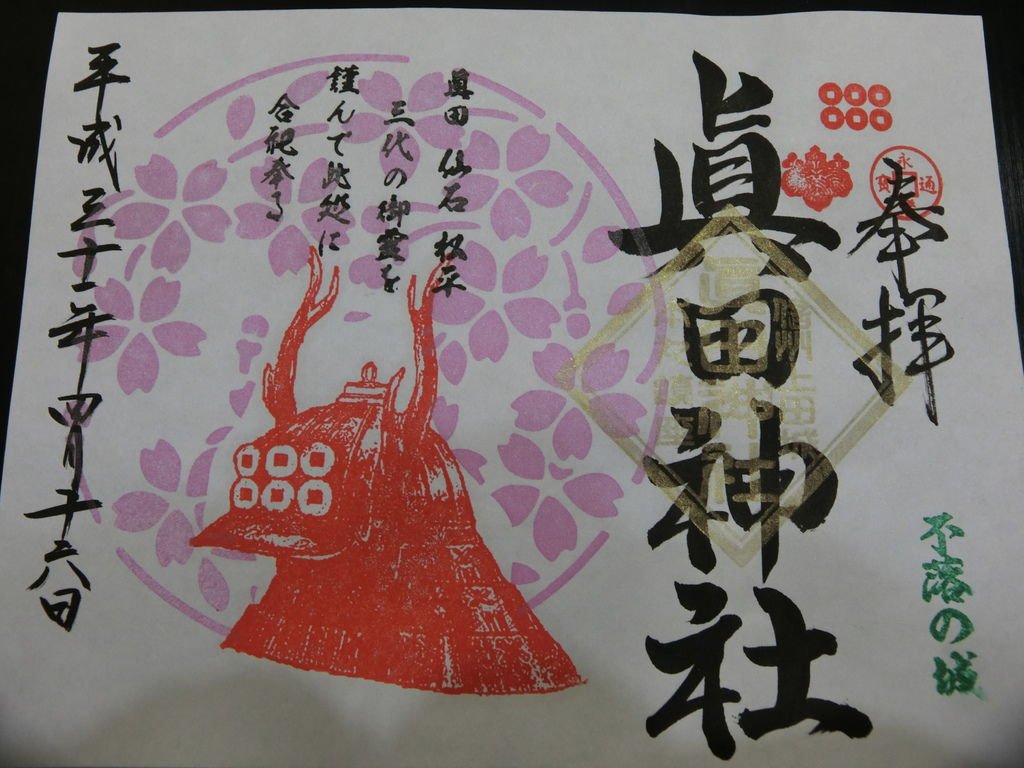 奉拝
永通
寳
不落の城
眞田神社
眞田 仙石 松平
三代の御霊を
謹んで此処に
合祀奉る
平成三十一年四月二十六日